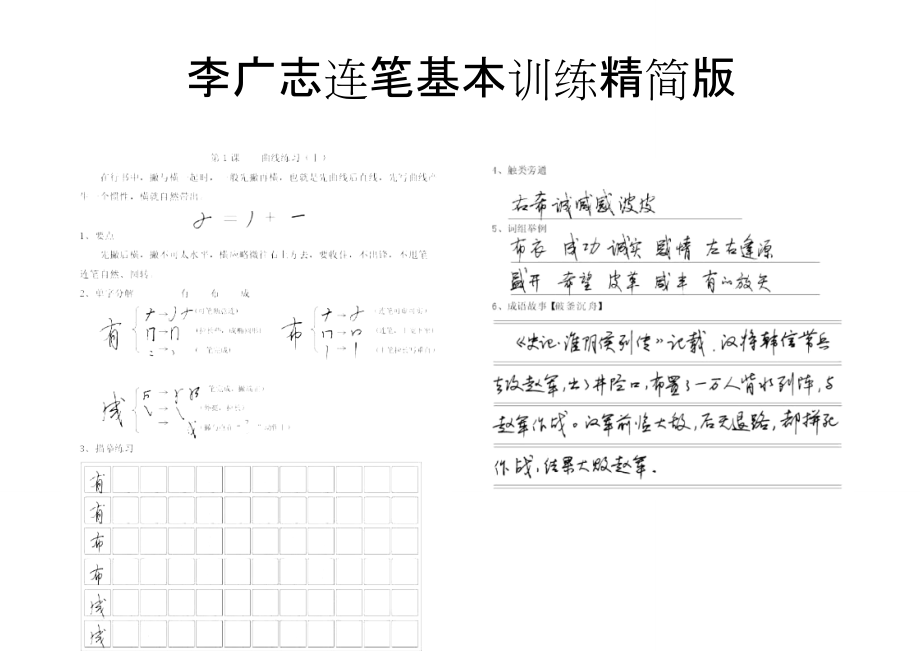 李广志连笔基本训练精简版
第1课 曲线练习(十)
在行书中，撇与横 起时， 般先撇再横，也就是先曲线后直线，先写曲线产
生一个惯性，横就自然带出。
= 丿 + 一
1、要点
先撇后横，撇不可太水平，横应略微往右上方去，要收住，不出锋，不退笔
连笔自然、圆转
2、单字分解 有 布 成
有
布
成
3、描摹练习
有
有
布
布
成
成
4、触类旁通
右希诚咸感波皮
5、词组举例
布衣 成功 诚实 感情 左右逢源
盛开 希望 皮革 咸丰 有的放矢
6、成语故事【破釜沉舟】
《史记·淮阴侯列传》记载，汉将韩信带兵
去攻赵军，出了井陉口，布置了一万人背水列阵，与
赵军作战。汉军前临大敌，后无退路，都拼死
作战，结果大败赵军.